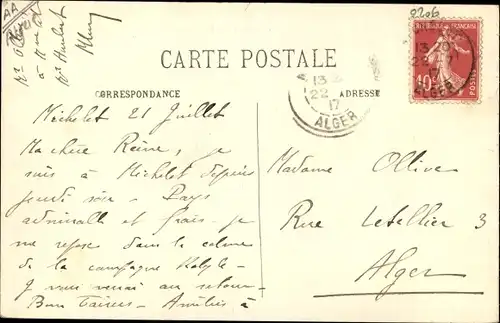 AA
0206
CARTE POSTALE
CORRESPONDANCE
ADRESSE
RÉPUBLIQUE FRANÇAISE
10
POSTES
13
22
17
ALGER
ALGER
Michelet 21 Juillet
Ma chère Reine, je
suis à Michelet depuis
jeudi soir - Pays
admirable et frais - je
me repose dans le calme
de la campagne Kabyle -
je vous verrai au retour -
Amitiés à
Madame Ollive
Rue Letellier 3
Alger